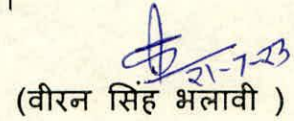 21-7-23
(वीरन सिंह भलावी )